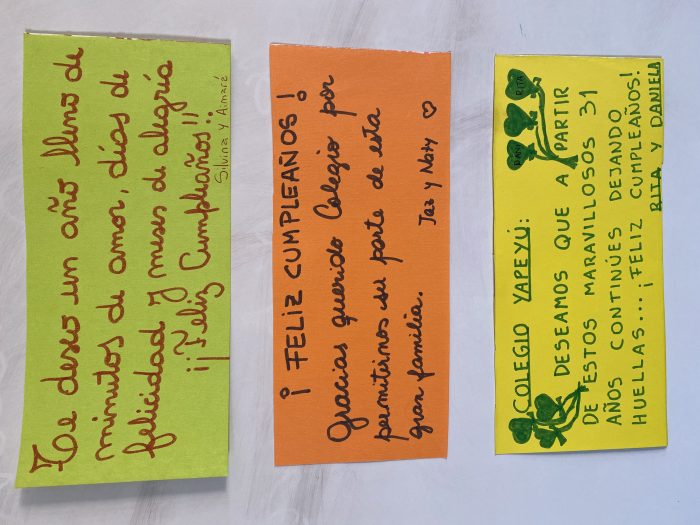 Te deseo un año lleno de
minutos de amor, días de
felicidad y meses de alegría
¡¡Feliz Cumpleaños!!
Silvina y Aimará
¡FELIZ CUMPLEAÑOS!
Gracias querido Colegio por
permitirnos ser parte de esta
gran familia.
Jaz y Naty
COLEGIO YAPEYÚ:
DESEAMOS QUE A PARTIR
DE ESTOS MARAVILLOSOS 31
AÑOS CONTINÚES DEJANDO
HUELLAS... ¡FELIZ CUMPLEAÑOS!
RITA Y DANIELA
RITA